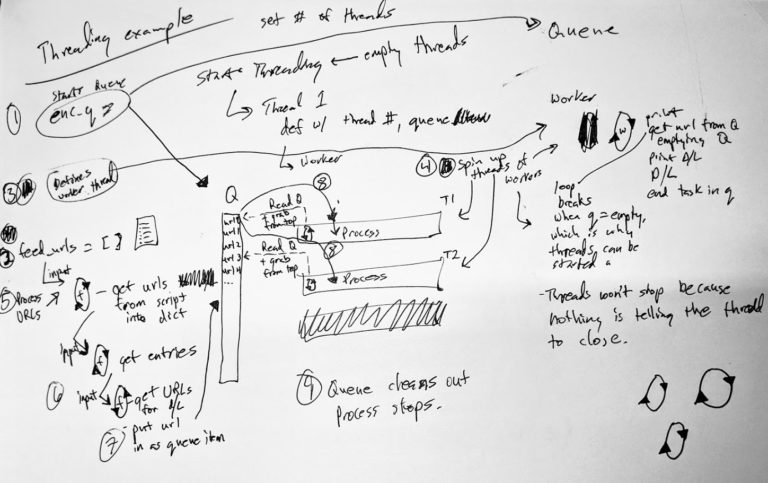 Threading example
set # of threads
Queue
Start Threading ← empty threads
Starts Queue
① enc_q
Thread 1
def w/ thread #, queue
Worker
Worker
print
get url from Q
emptying Q
print D/L
D/L
end task in q
③ Defines
worker thread
④ spin up
threads of
workers
loop
breaks
when q = empty,
which is why
threads can be
started
Q
url1
url2
url3
url4
...
⑧
Read Q
+ grab
from top
T1
Process
⑧
Read Q
+ grab
from top
T2
Process
feed_urls = [ ]
input
⑤ Process
URLs
f - get urls
from script
into dict
input
f get entries
⑥ input
f - get URLs
for D/L
⑦ - put url
in as queue item
⑨ Queue cleans out
Process stops.
- Threads won't stop because
nothing is telling the thread
to close.